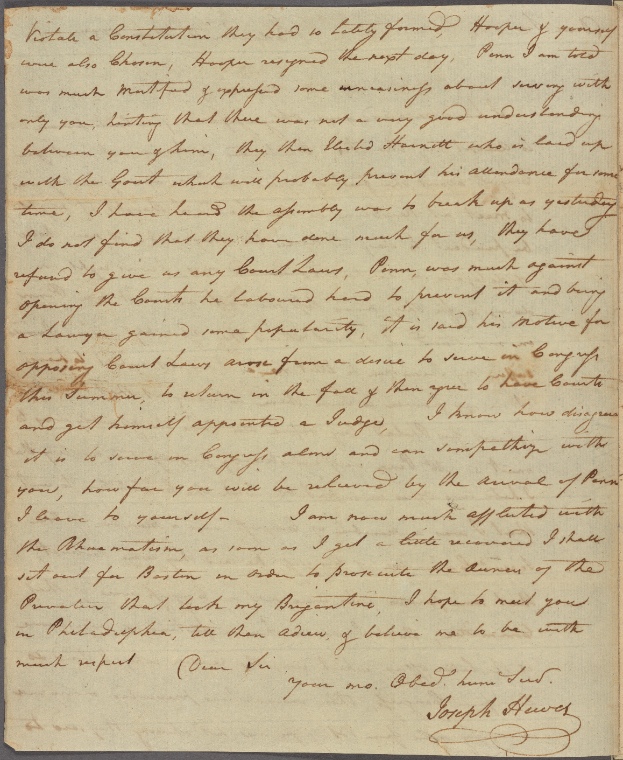 Violate a Constitution they had so lately formed, Hooper & yourself
were also Chosen, Hooper resigned the next day, Penn I am told
was much Mortifed & expressed some uneasiness about serving with
only you, hinting that there was not a very good understanding
between you & him, they then Elected Harnett who is laid up
with the Gout which will probably prevent his attendance for some
time, I have heard the assembly was to break up as yesterday
I do not find that they have done much for us, they have
refused to give us any Court Laws, Penn, was much against
opening the Courts he laboured hard to prevent it and being
a Lawyer gained some popularity, it is said his motive for
opposing Court Laws arose from a desire to serve in Congress
this Summer, to return in the fall & then agree to have Courts
and get himself appointed a Judge, I know how disagree
it is to serve in Congress alone and can simpathize with
you, how far you will be relieved by the arrival of Penn
I leave to yourself - I am now much afflicted with
the Rhuematism, as soon as I get a little recovered I shall
set out for Boston in order to prosecute the Owners of the
Privateer that took my Brigantine, I hope to meet you
in Philadelphia, till then adieu, & believe me to be with
much respect Dear Sir
your mo. Obed. hum: Serv.
Joseph Hewes